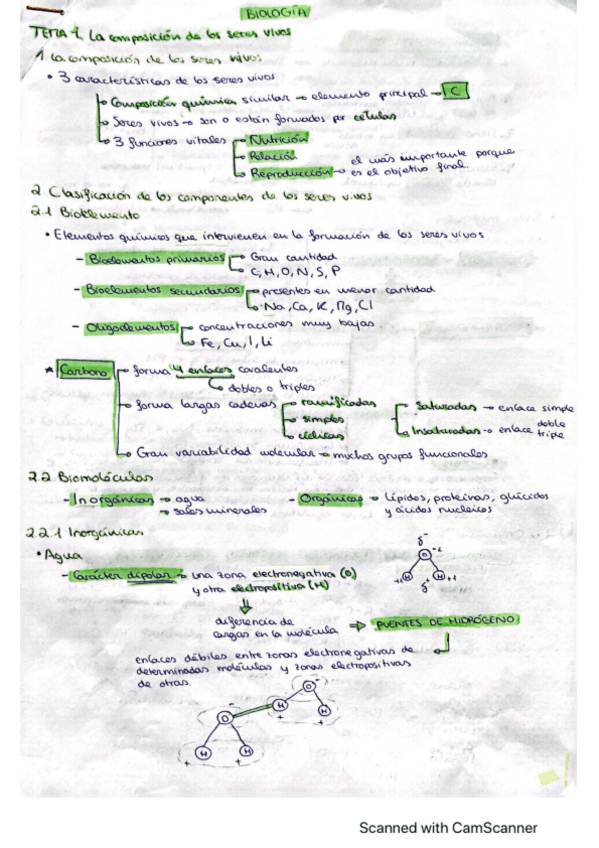 BIOLOGÍA
TEMA 1. La composición de los seres vivos
1. La composición de los seres vivos
• 3 características de los seres vivos
Composición química similar → elemento principal → C
Seres vivos → son o están formados por células
3 funciones vitales
Nutrición
Relación
Reproducción → el más importante porque es el objetivo final.
2. Clasificación de los componentes de los seres vivos
2.1 Bioelemento
• Elementos químicos que intervienen en la formación de los seres vivos
- Bioelementos primarios
Gran cantidad
C, H, O, N, S, P
- Bioelementos secundarios
presentes en menor cantidad
Na, Ca, K, Mg, Cl
- Oligoelementos
concentraciones muy bajas.
Fe, Cu, I, Li
* Carbono
forma 4 enlaces covalentes
dobles o triples
forma largas cadenas
ramificadas
simples
cíclicas
Saturadas → enlace simple
Insaturadas → enlace doble triple
Gran variabilidad molecular → muchos grupos funcionales
2.2 Biomoléculas
- Inorgánicas → agua
→ sales minerales
- Orgánicas → Lípidos, proteínas, glúcidos
y ácidos nucleicos
2.2.1 Inorgánicas
• Agua
- Carácter dipolar → una zona electronegativa (O)
y otra electropositiva (H)
δ-
O -2
H +1
H +1
δ+
diferencia de
cargas en la molécula
⇒ PUENTES DE HIDRÓGENO
enlaces débiles entre zonas electronegativas de
determinadas moléculas y zonas electropositivas
de otras.
O -
H +
H +
O -
H +
H +
Scanned with CamScanner